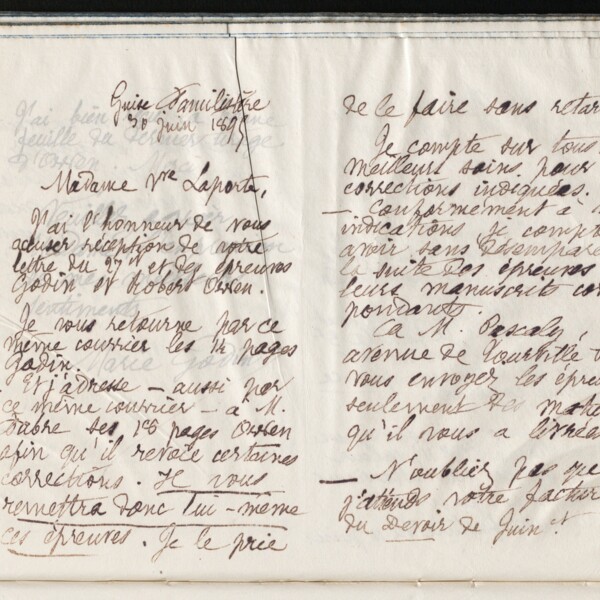 Guise Familistère
30 juin 1895
Madame Vve Laporte,
J'ai l'honneur de vous
accuser réception de votre
lettre du 27 ct et des épreuves
Godin et Robert Owen.
Je vous retourne par ce
même courrier les 14 pages
Godin.
Et j'adresse - aussi par
ce même courrier - à M.
Fabre ses 18 pages Owen
afin qu'il revoie certaines
corrections. Il vous
remettra donc lui-même
ces épreuves. Je le prie
de le faire sans retar
Je compte sur tous
meilleurs soins pour
corrections indiquées.
— Conformément à
indications je compte
avoir sans désemparer
la suite des épreuves
leurs manuscrits cor
pondants.
à M. Pascaly,
avenue de Tourville
vous envoyer les épreu
seulement des
qu'il vous a livrées
— N'oubliez pas que
j'attends votre facture
du Devoir de Juin ct.